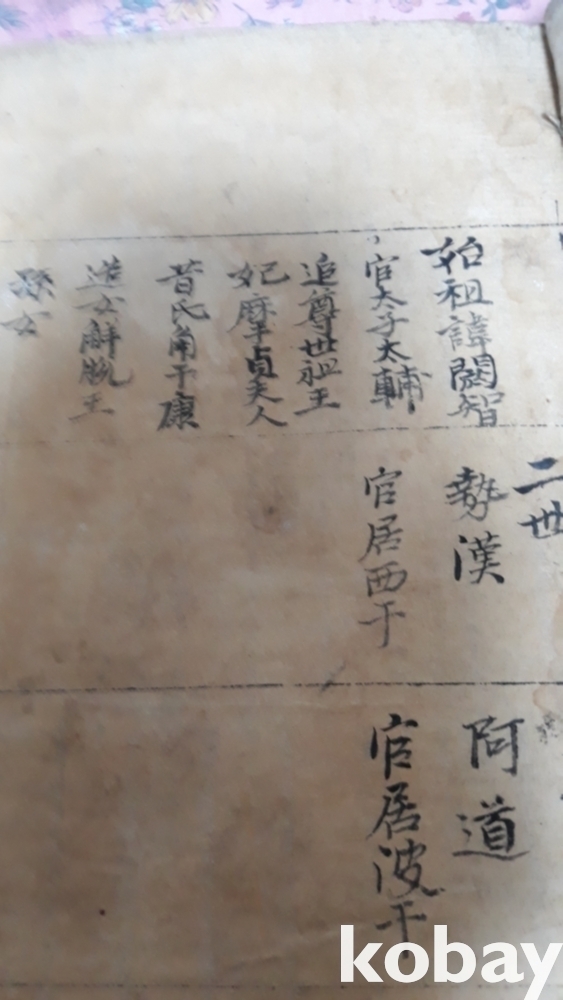 始祖諱閼智
官太子太輔
追尊世祖王
妃摩貞夫人
昔氏角干康
造女解脫王
孫女
二世
勢漢
官居西干
阿道
官居波干
kobay